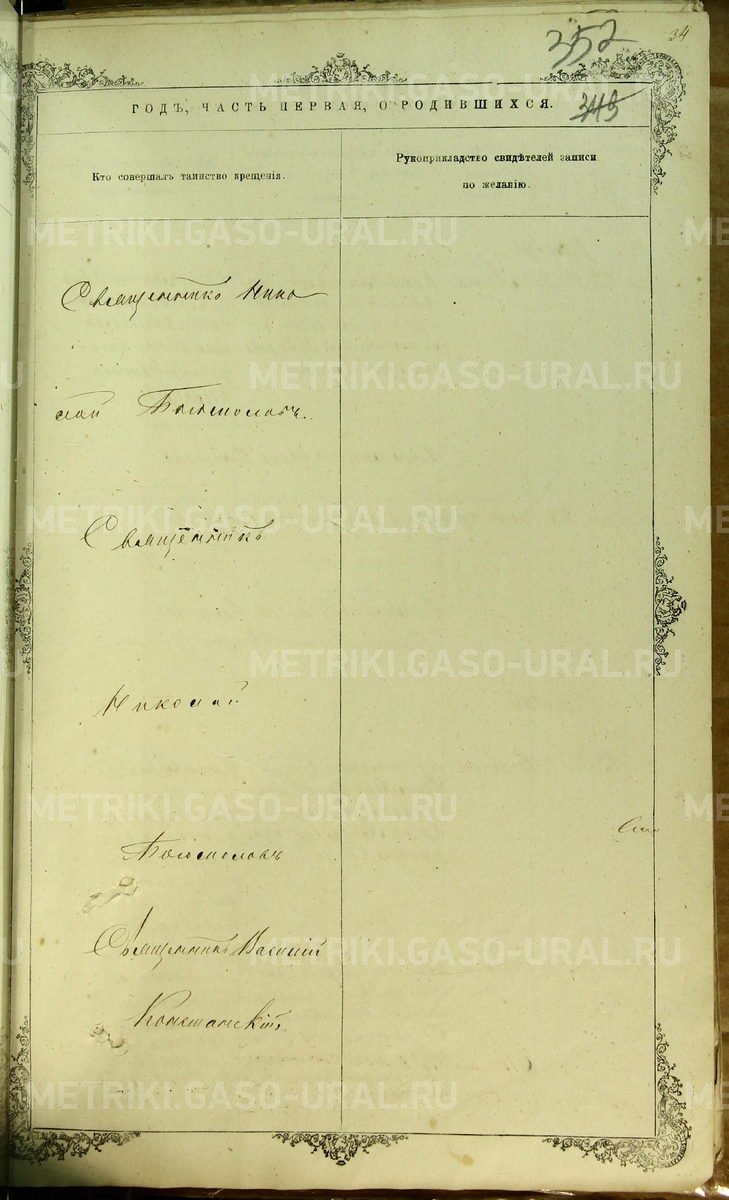 34
352
ГОДЪ, ЧАСТЬ ПЕРВАЯ, О РОДИВШИХСЯ.
Кто совершалъ таинство крещенія.
Рукоприкладство свидѣтелей записи
по желанію.
Священникъ Нико
лай Богословъ.
Священникъ
Николай
Богословъ
Священникъ Василій
METRIKI.GASO-URAL.RU